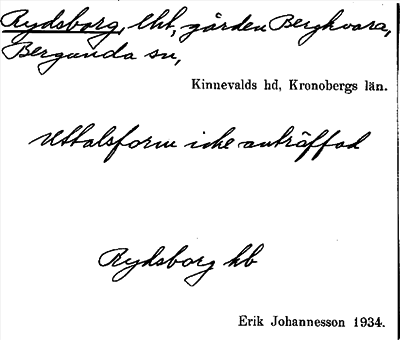 Rydsborg, lht, gården Bergkvara,
Bergunda sn,
Kinnevalds hd, Kronobergs län.
Uttalsform icke anträffad
Rydsborg hb
Erik Johannesson 1934.